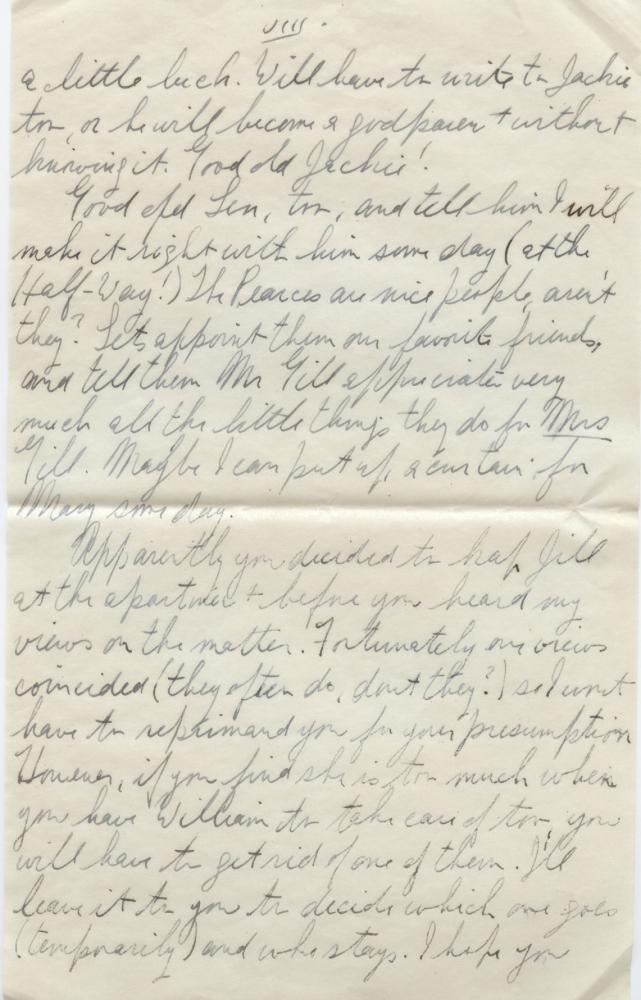 VIII.
a little bech. Will have to write to Jackie
too, or he will become a godparent without
knowing it. Good old Jackie!
Good old Len, too, and tell him I will
make it right with him some day (at the
Half-Way!) The Pearces are nice people, aren't
they? Lets appoint them our favorite friends,
and tell them Mr Gill appreciates very
much all the little things they do for Mrs
Gill. Maybe I can put up a curtain for
Mary some day.
Apparently you decided to keep Jill
at the apartment before you heard my
views on the matter. Fortunately our views
coincided (they often do, don't they?) so I won't
have to reprimand you for your presumption
However, if you find she is too much when
you have William to take care of too, you
will have to get rid of one of them. I'll
leave it to you to decide which one goes
(temporarily) and who stays. I hope you